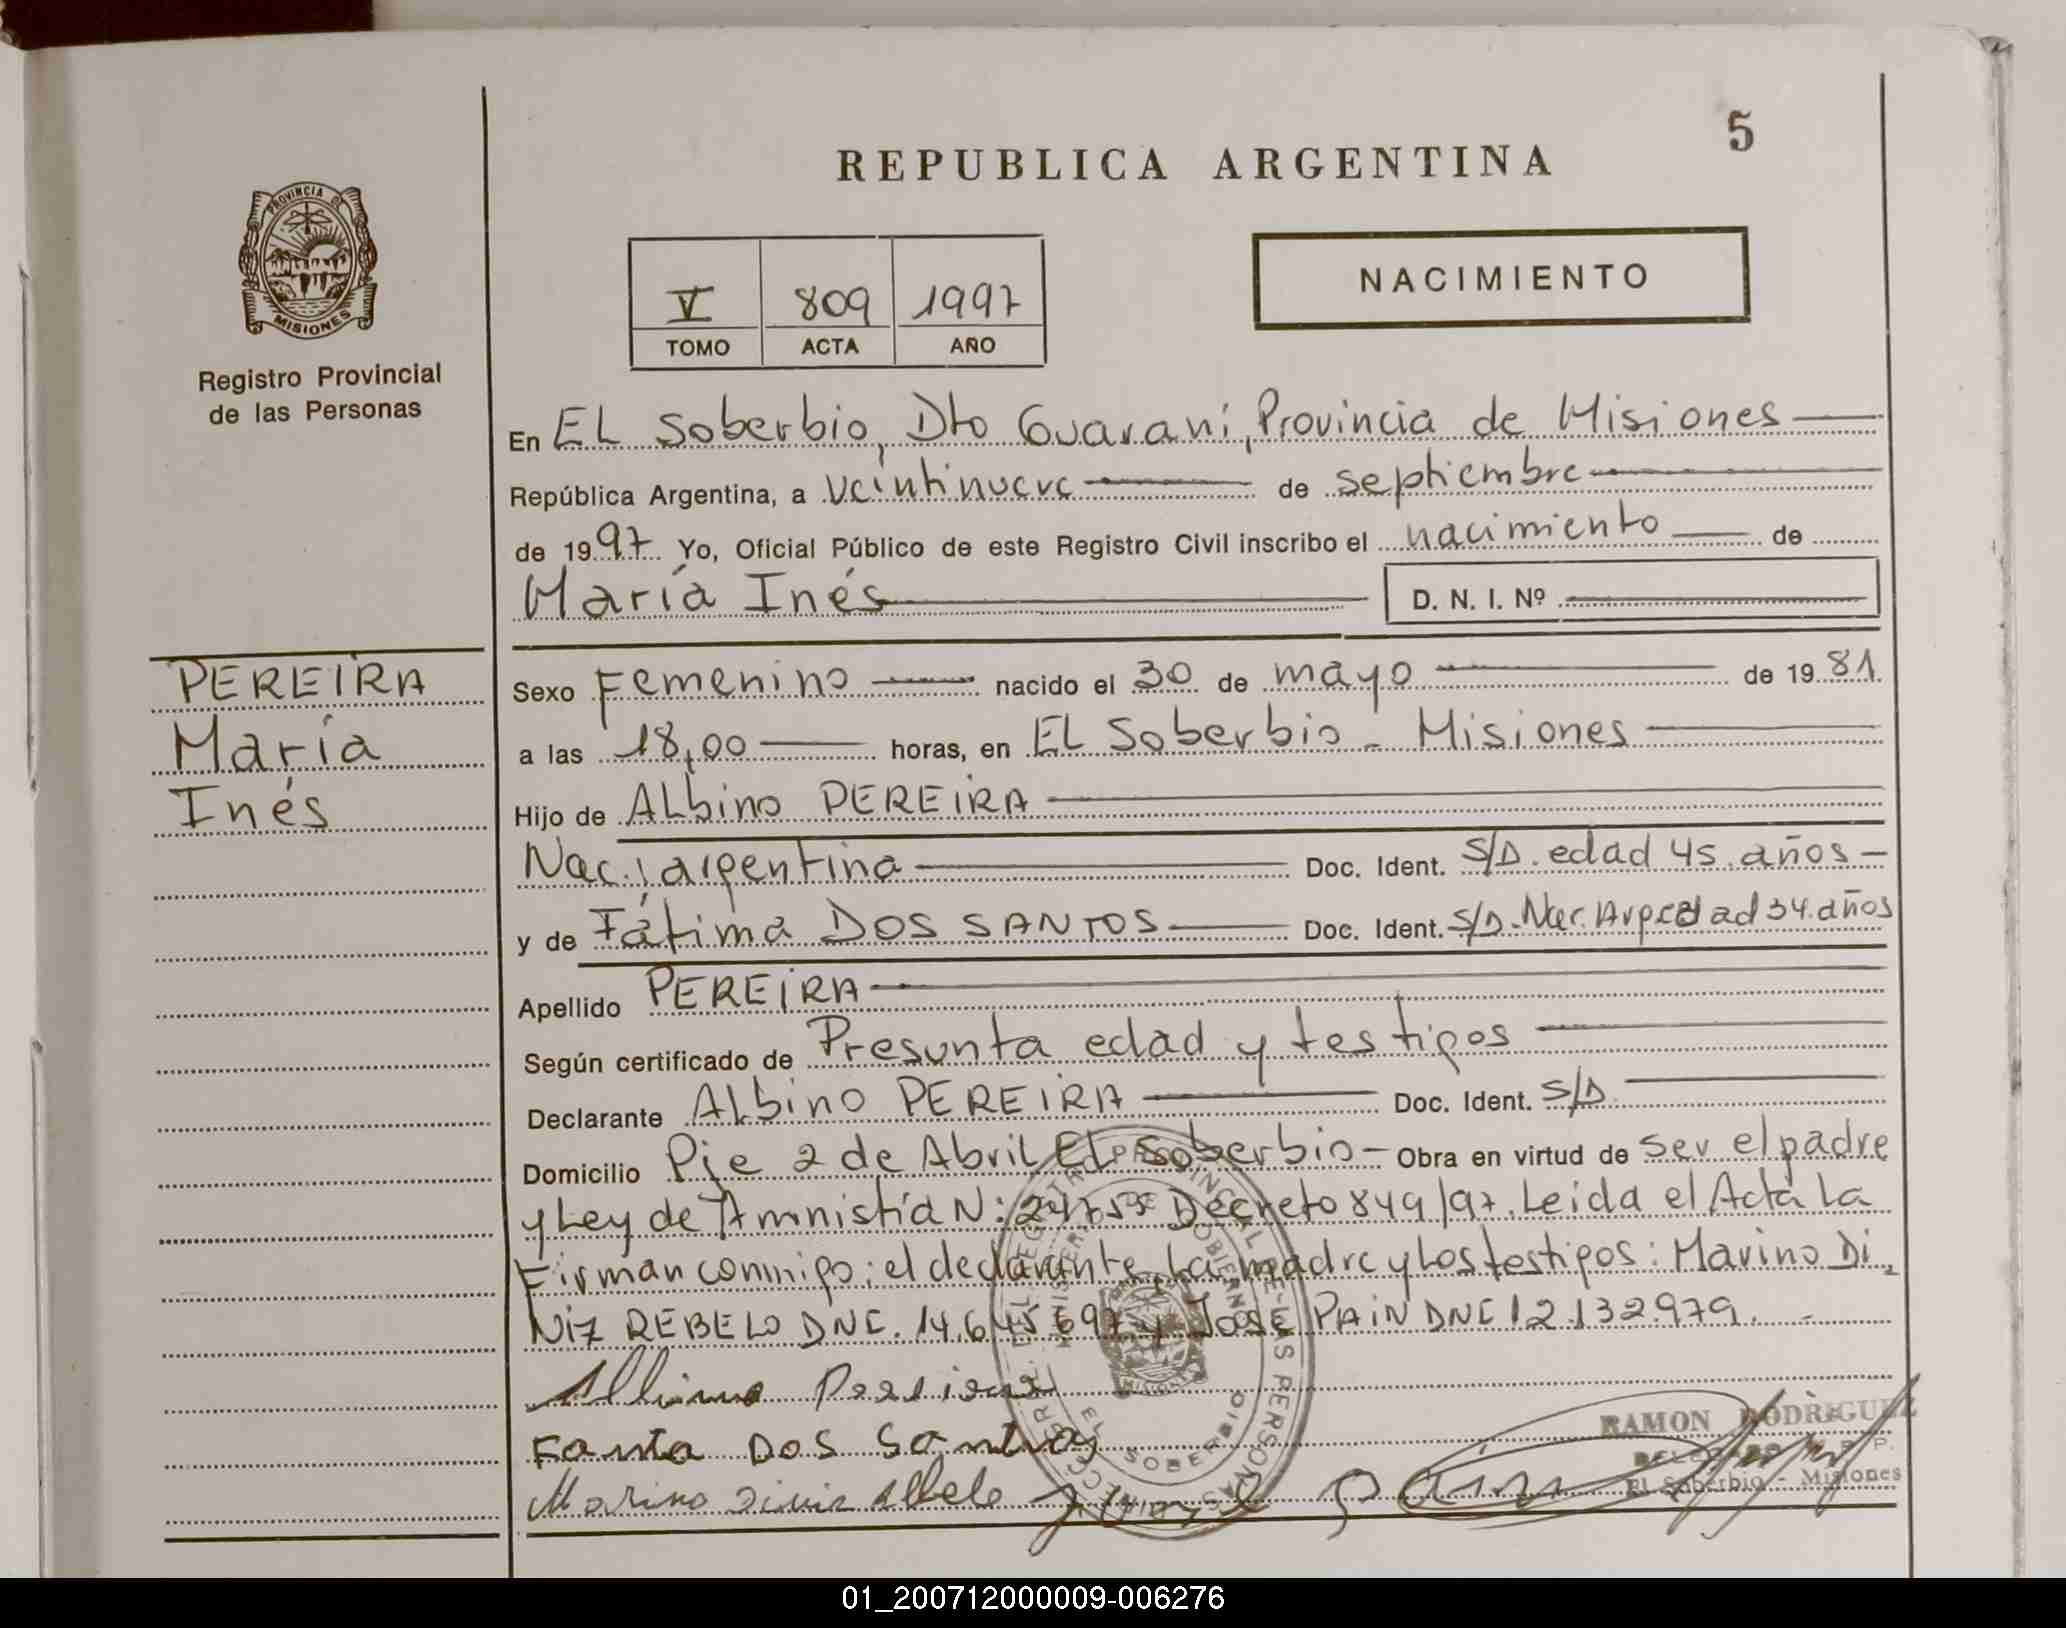 5
REPUBLICA ARGENTINA
PROVINCIA DE
MISIONES
Registro Provincial
de las Personas
V 809 1997
TOMO ACTA AÑO
NACIMIENTO
En EL Soberbio, Dto Guaraní, Provincia de Misiones
República Argentina, a veintinueve de septiembre
de 1997 Yo, Oficial Público de este Registro Civil inscribo el nacimiento de
María Inés D. N. I. Nº
PEREIRA
María
Inés
Sexo Femenino nacido el 30 de mayo de 1981
a las 18,00 horas, en EL Soberbio - Misiones
Hijo de ALbino PEREIRA
Nac. argentina Doc. Ident. S/D. edad 45 años
y de Fátima DOS SANTOS Doc. Ident. S/D. Nac. Arg edad 34 años
Apellido PEREIRA
Según certificado de Presunta edad y testigos
Declarante ALbino PEREIRA Doc. Ident. S/D
Domicilio Pje 2 de Abril EL Soberbio - Obra en virtud de ser el padre
y Ley de Amnistía N: Decreto 849/97. Leida el Acta La
Firman conmigo: el declarante, La madre y Los testigos: Marino Di
Niz REBELO DNI. 14.645.697 y José PAiN DNI 12.132.979.
Albino Pereira
Fanta Dos Santos
Marino
RAMON RODRIGUEZ
DELEGADO R. P. P.
El Soberbio - Misiones
EL SOBERBIO
01_200712000009-006276